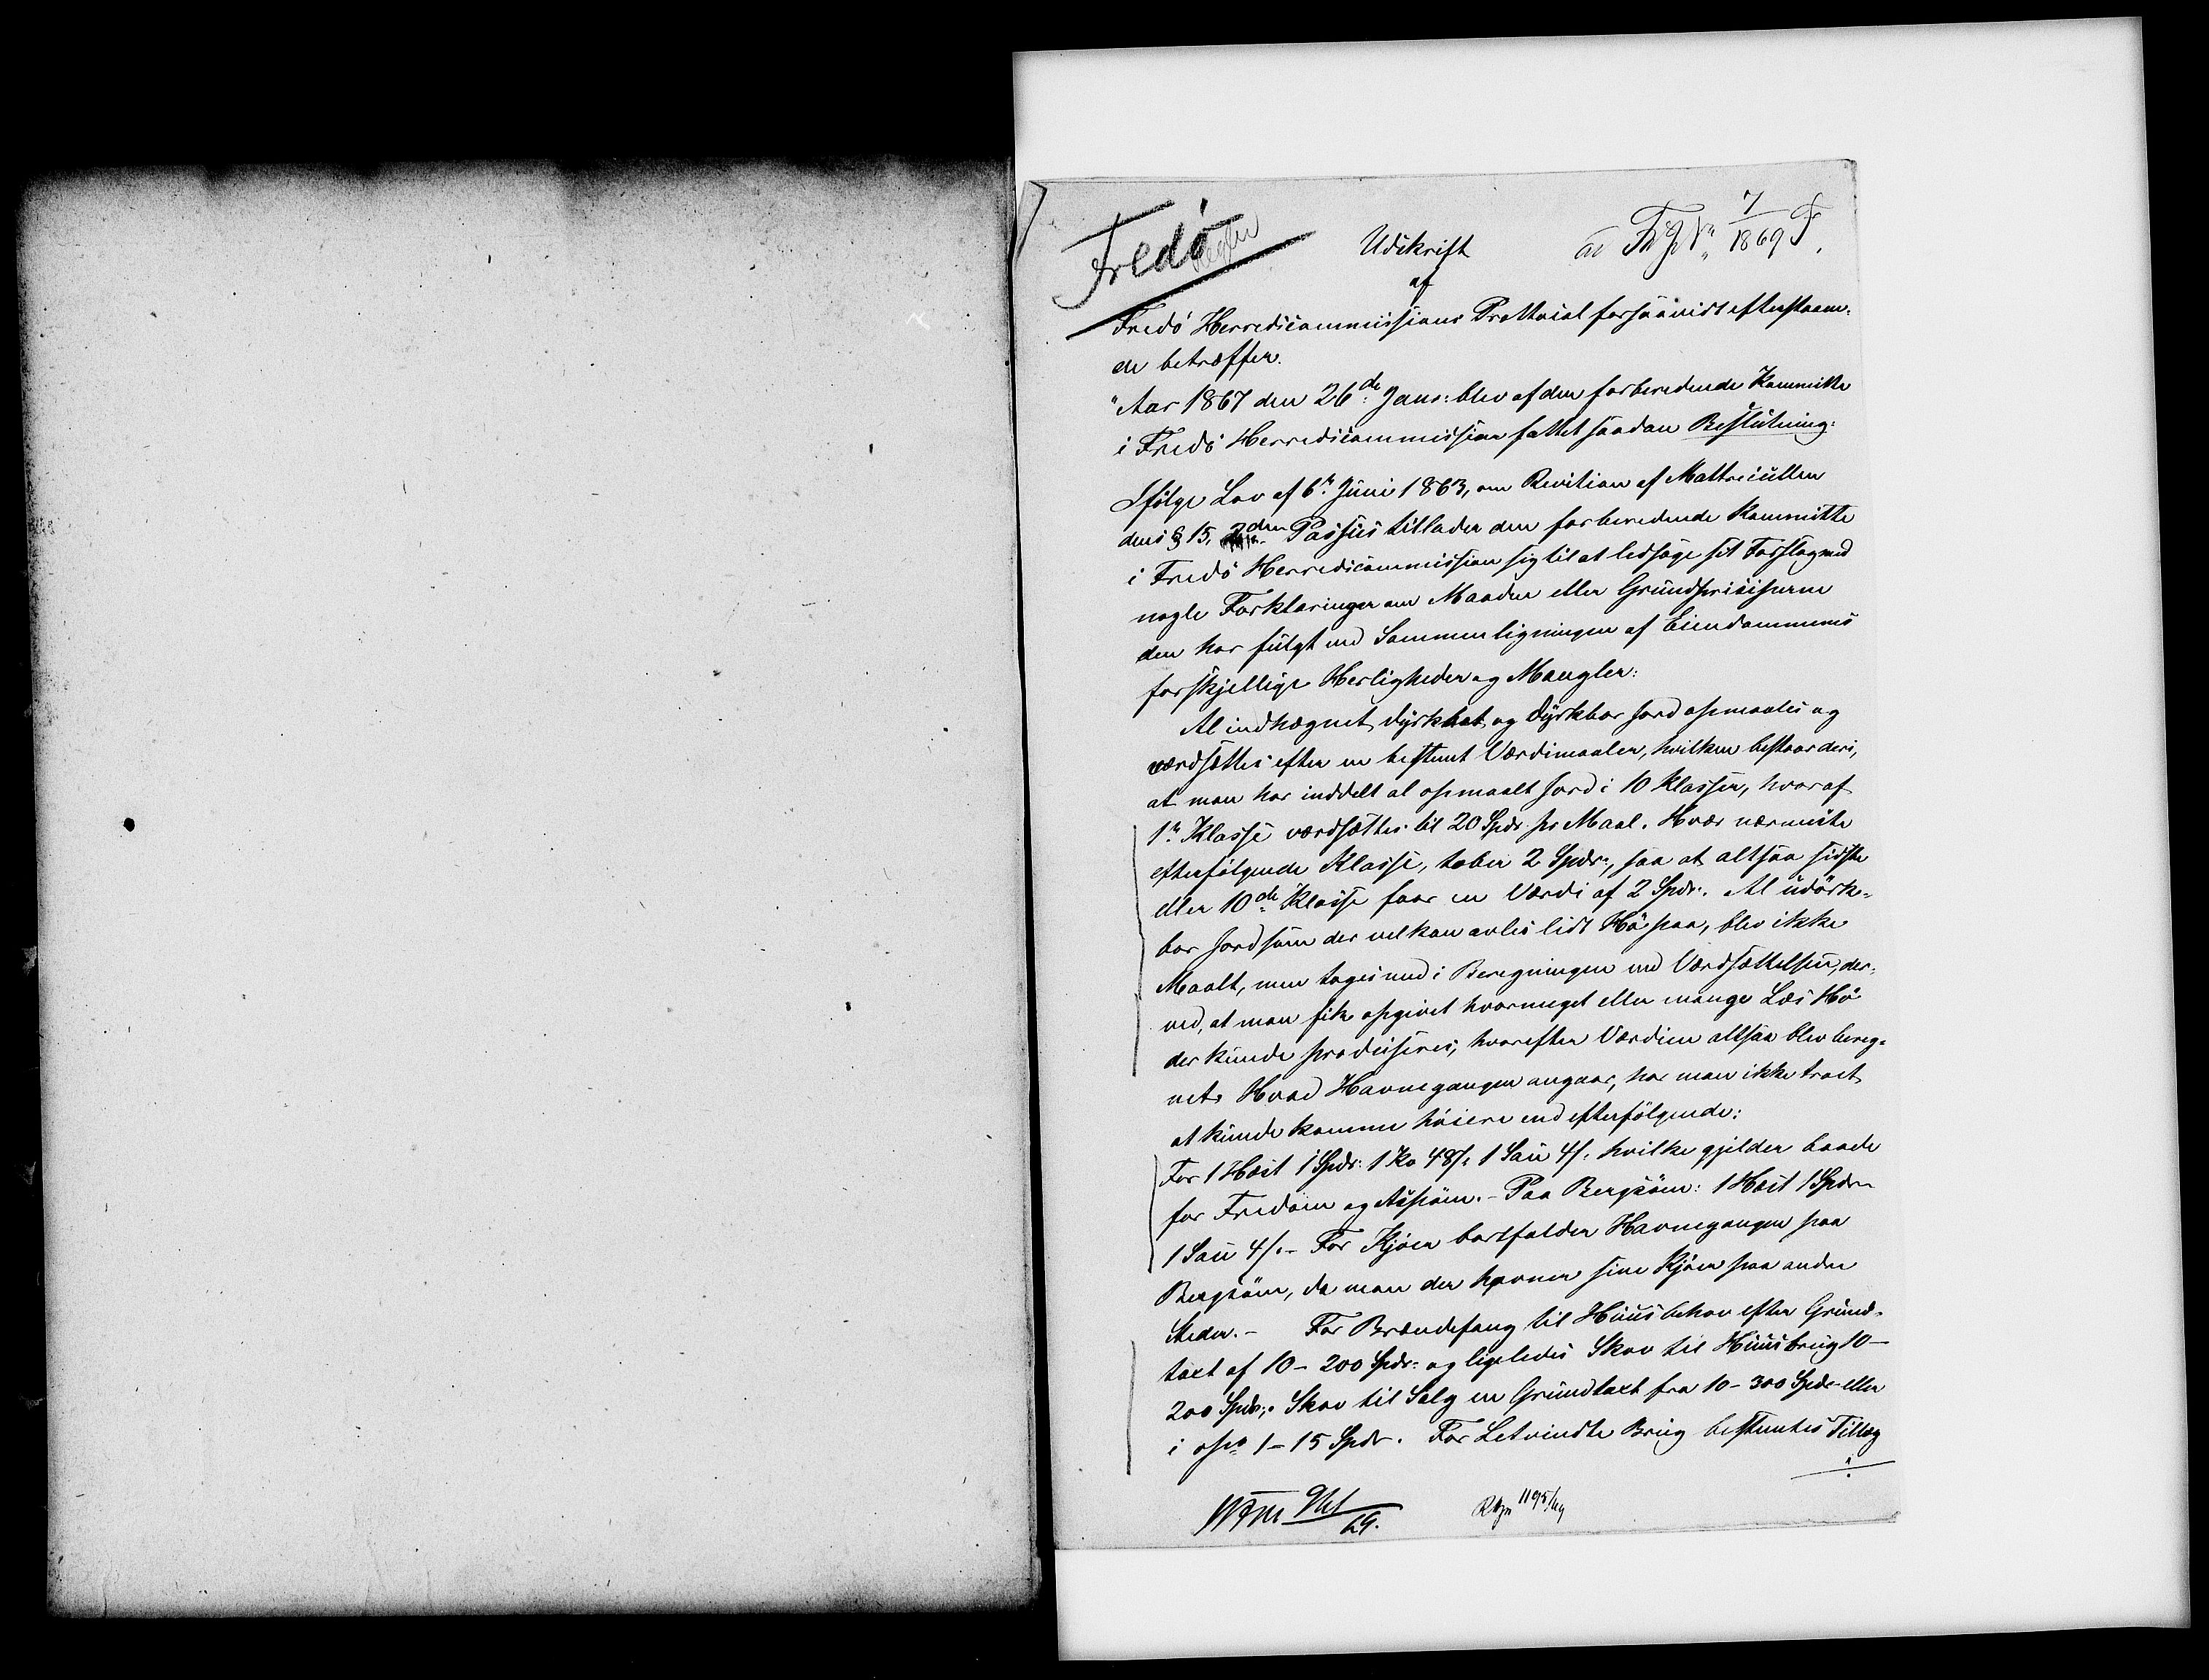 Fredö
Udskrift
ad Th J N 7/1869 F.
af
Fredö Herredscommissions Prottocol forsaavidt efterstaaen-
de betræffer.
"Aar 1867 den 26de Janr: blev af den forberedende Kommitte
i Fredö Herredscommission fattet saadan Beslutning:
Ifölge Lov af 6te Juni 1863, om Revition af Mattriculen
dens § 15, 2den Passus tillader den forberedende Kommitte
i Fredö Herredscommission sig til at ledsage sit Forslag med
nogle Forklaringer om Maaden eller Grundprisiperne
den har fulgt ved Sammenligningen af Eiendommenes
forskjellige Herligheder og Mangler:
Al indhægnet, dyrkhet og dyrkbar Jord opmaales og
værdsættes efter en bestemt Værdimaaler, hvilken bestaar deri,
at man har inddelt al opmaalt Jord i 10 Klasser, hvoraf
1te Klasse værdsættes til 20 Spdr pr Maal. Hver nærmeste
efterfölgende Klasse, taber 2 Spdr:, saa at altsaa sidste
eller 10de Klasse faar en Værdi af 2 Spdr:. Al udörk-
bar Jord som der vel kan avles lidt Hö paa, blev ikke
Maalt, men toges med i Beregningen ved Værdsættelsen, der-
ved, at man fik opgivet hvormeget eller mange Læs Hö
der kunde produseres, hvorefter Værdien altsaa blev bereg-
net. Hvad Havnegangen angaar, har man ikke troet
at kunde komme höiere end efterfölgende:
For 1 Hæst 1 Spdr: 1 Ko 48/: 1 Sau 4/: hvilke gjelder baade
for Fredöen og Aspöen. - Paa Bergsöen: 1 Hæst 1 Spdr
1 Sau 4/. - For Kjöer bortfalder Havnegangen paa
Bergsöen, da man der havner sine Kjöer paa andre
Steder. - For Brændefang til Huusbehov efter Grund-
taxt af 10 - 200 Spdr: og ligeledes Skov til Huusbrug 10 -
200 Spdr;. Skov til Salg en Grundtaxt fra 10 - 300 Spdr eller
i 1 - 15 Spdr. For Letvindte Brug bestemtes Tillæg
69.
1195/69